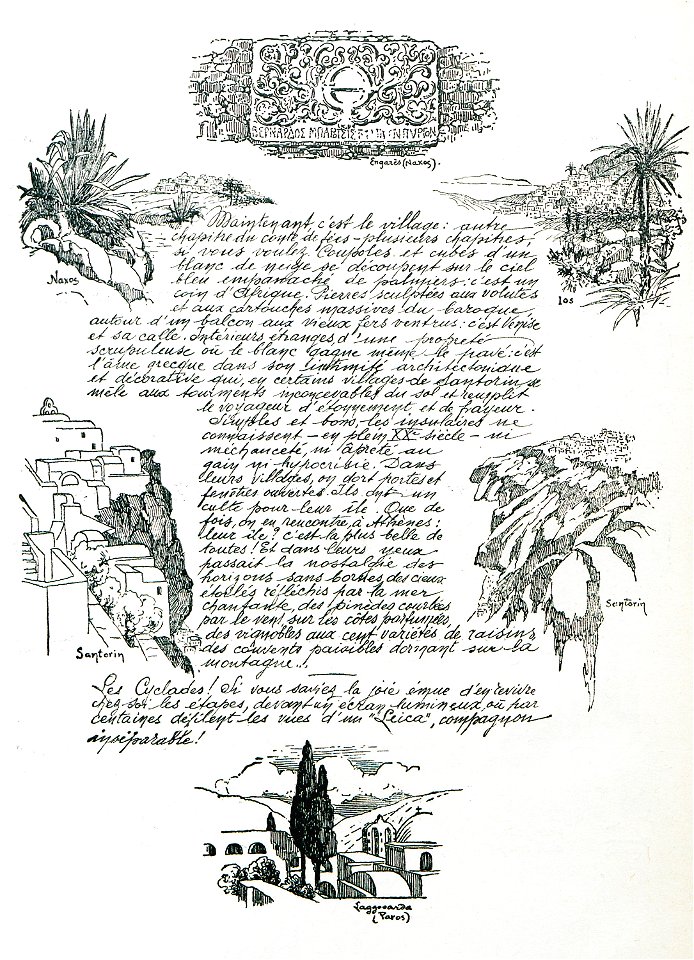 ΒΕΡΝΑΡΔΟΣ
Engarès (Naxos).
Naxos
Ios
Maintenant, c'est le village: autre
chapitre du conte de fées - plusieurs chapitres,
si vous voulez. Coupoles et cubes d'un
blanc de neige se découpent sur le ciel
bleu empanaché de palmiers: c'est un
coin d'Afrique. Pierres sculptées aux volutes
et aux cartouches massives du baroque,
autour d'un balcon aux vieux fers ventrus: c'est Venise
et sa calle. Intérieurs étranges d'une propreté
scrupuleuse où le blanc gagne même le pavé: c'est
l'âme grecque dans son intimité architectonique
et décorative qui, en certains villages de Santorin, se
mêle aux tourments inconcevables du sol et remplit
le voyageur d'étonnement, et de frayeur.
Simples et bons, les insulaires ne
connaissent - en plein XXe siècle - ni
méchanceté, ni âpreté au
gain ni hypocrisie. Dans
leurs villages, on dort portes et
fenêtres ouvertes. Ils ont un
culte pour leur île. Que de
fois, on en rencontre, à Athènes:
leur île? c'est la plus belle de
toutes! Et dans leurs yeux
passait la nostalgie des
horizons sans bornes, des cieux
étoilés réfléchis par la mer
chantante, des pinèdes courbées
par le vent, sur les côtes parfumées,
des vignobles aux cent variétés de raisins,
des couvents paisibles dormant sur la
montagne...!
Santorin
Santorin
Les Cyclades! Si vous saviez la joie émue d'en revivre
chez-soi les étapes, devant un écran lumineux, où par
centaines défilent les vues d'un "Leica", compagnon
inséparable!
Laggovarda
(Paros)